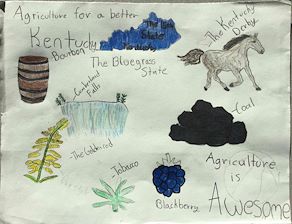 Agriculture for a better
Kentucky
Bourbon
The
State
Kentucky
The Bluegrass
State
-The Kentucky
Derby
-Cumberland
Falls
-Coal
-The Goldenrod
-Tobacco
Blackberry
Agriculture
is
Awesome